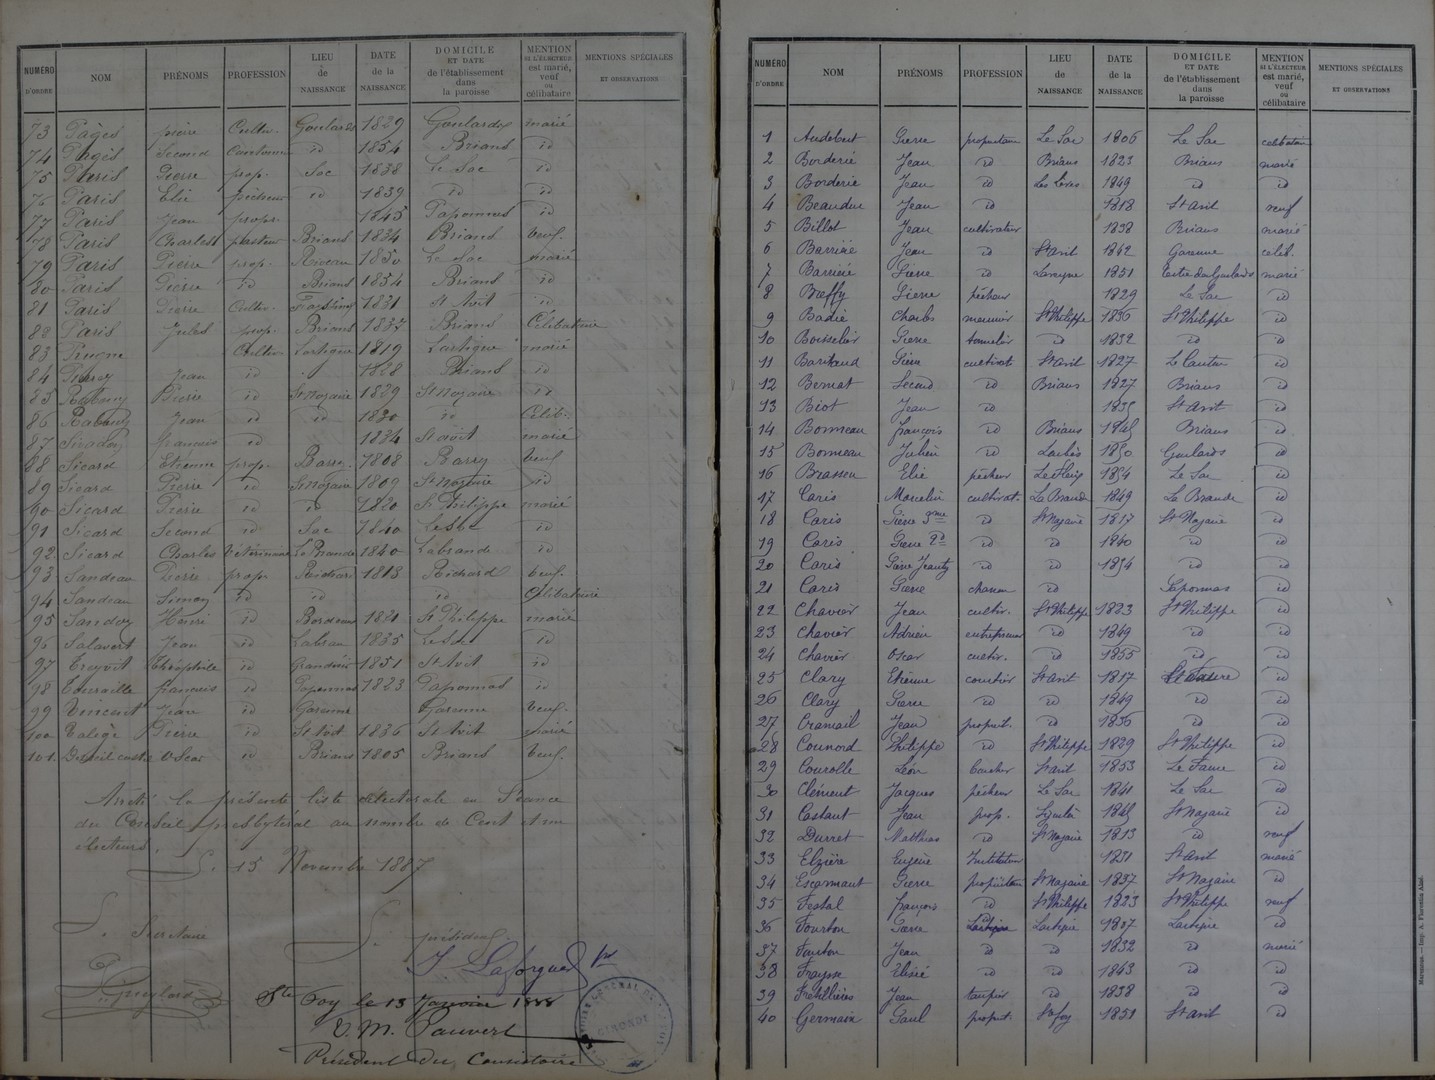 NUMÉRO D'ORDRE NOM PRÉNOMS PROFESSION LIEU de NAISSANCE DATE de la NAISSANCE DOMICILE ET DATE de l'établissement dans la paroisse MENTION SI L'ÉLECTEUR est marié, veuf ou célibataire MENTIONS SPÉCIALES ET OBSERVATIONS
73 Pagès pierre Cultiv. Goulards 1829 Goulards marié
74 Pagès Second Cantonnier id 1854 Briand id
75 Paris Pierre prop. Sac 1838 Le Sac id
76 Paris Elie pêcheur id 1839 id id
77 Paris Jean propr. 1845 Taponnas id
78 Paris Charles pasteur Briand 1834 Briand veuf.
79 Paris Pierre prop. 1850 Le Sac marié
80 Paris Pierre id Briand 1854 Briand id
81 Paris Pierre Cultiv. 1831 St Avit id
82 Paris Jules prop. Briand 1837 Briand Célibataire
83 Cultiv. Lartigue 1819 Lartigue marié
84 Jean id 1828 Briand id
85 Pierre id St Nazaire 1829 St Nazaire id
86 Jean id id 1830 id Célib.
87 françois id 1834 St avit marié
88 Sicard Etienne prop. Barry 1808 Barry veuf
89 Sicard Pierre id St Nazaire 1809 St Nazaire id
90 Sicard Pierre id id 1820 St Philippe marié
91 Sicard Second id Sac 1840 id
92 Sicard Charles Vétérinaire 1840 Labrande id
93 Sandeau Pierre prop. Richard 1818 Richard veuf.
94 Sandeau Simon id id id Célibataire
95 Henri id Bordeaux 1821 St Philippe marié
96 Salavert Jean id 1835 id
97 Théophile id 1851 St Avit id
98 Touraille françois id Taponnas 1823 Taponnas id
99 Vincent Jean id Garenne Garenne Veuf.
100 Pierre id St Avit 1836 St Avit marié
101 Oscar id Briand 1805 Briand Veuf.
Arrêté la présente liste électorale en Séance
du Conseil presbytéral au nombre de Cent et un
électeurs.
Le 15 Novembre 1887
Le Secrétaire
Le président
Ste Foy le 13 Janvier 1888
Président du Consistoire
NUMÉRO D'ORDRE NOM PRÉNOMS PROFESSION LIEU de NAISSANCE DATE de la NAISSANCE DOMICILE ET DATE de l'établissement dans la paroisse MENTION SI L'ÉLECTEUR est marié, veuf ou célibataire MENTIONS SPÉCIALES ET OBSERVATIONS
1 Audebert Pierre propriétaire Le Sac 1806 Le Sac celibataire
2 Borderie Jean id Brians 1823 Brians marié
3 Borderie Jean id 1849 id id
4 Beaudun Jean id 1818 St Avit veuf
5 Billot Jean cultivateur 1838 Brians marié
6 Barrière Jean id St Avit 1842 Garenne célib.
7 Barrière Pierre id 1831 Tertre des Goulards marié
8 Pierre pêcheur 1829 Le Sac id
9 Badie Charles meunier St Philippe 1836 St Philippe id
10 Boisselier Pierre tonnelier id 1832 id id
11 Baritaud Pierre cultivat. St Avit 1827 Le Cantou id
12 Bernat Second id Brians 1827 Brians id
13 Biot Jean id St Avit id
14 Bonneau françois id Brians Brians id
15 Bonneau Julien id 1850 Goulards id
16 Brasseu Elie pêcheur Le Fleix 1854 Le Sac id
17 Caris Marcelin cultivat. La Brande 1849 La Brande id
18 Caris Pierre 3me id St Nazaire 1817 St Nazaire id
19 Caris Pierre 2d id id 1840 id id
20 Caris Pierre Jeanty id id 1854 id id
21 Caris Pierre id Taponnas id
22 Chavier Jean cultiv. St Philippe 1823 St Philippe id
23 Chavier Adrien entrepreneur id 1849 id id
24 Chavier Oscar cultiv. id 1855 id id
25 Clary Etienne courtier St Avit 1817 id
26 Clary Pierre id id 1849 id id
27 Cramail Jean propriét. id 1836 id id
28 Counord Philippe id St Philippe 1829 St Philippe id
29 Courolle Léon boucher St Avit 1853 id
30 Clément Jacques pêcheur Le Sac 1841 Le Sac id
31 Castaut Jean prop. St Nazaire id
32 Durret Matthias id St Nazaire 1813 id veuf
33 Elzière Eugène Instituteur 1831 St Avit marié
34 Escarmant Pierre propriétaire St Nazaire 1837 St Nazaire id
35 Festal françois id St Philippe 1823 St Philippe veuf
36 Fourton Pierre Lartigue 1807 Lartigue id
37 Jean id id 1832 id marié
38 Fraysse Elisée id id 1843 id id
39 Jean taupier id 1838 id id
40 Germain Paul propriét. St foy 1851 St Avit id
Marennes. — Imp. A. Florentin Aîné.